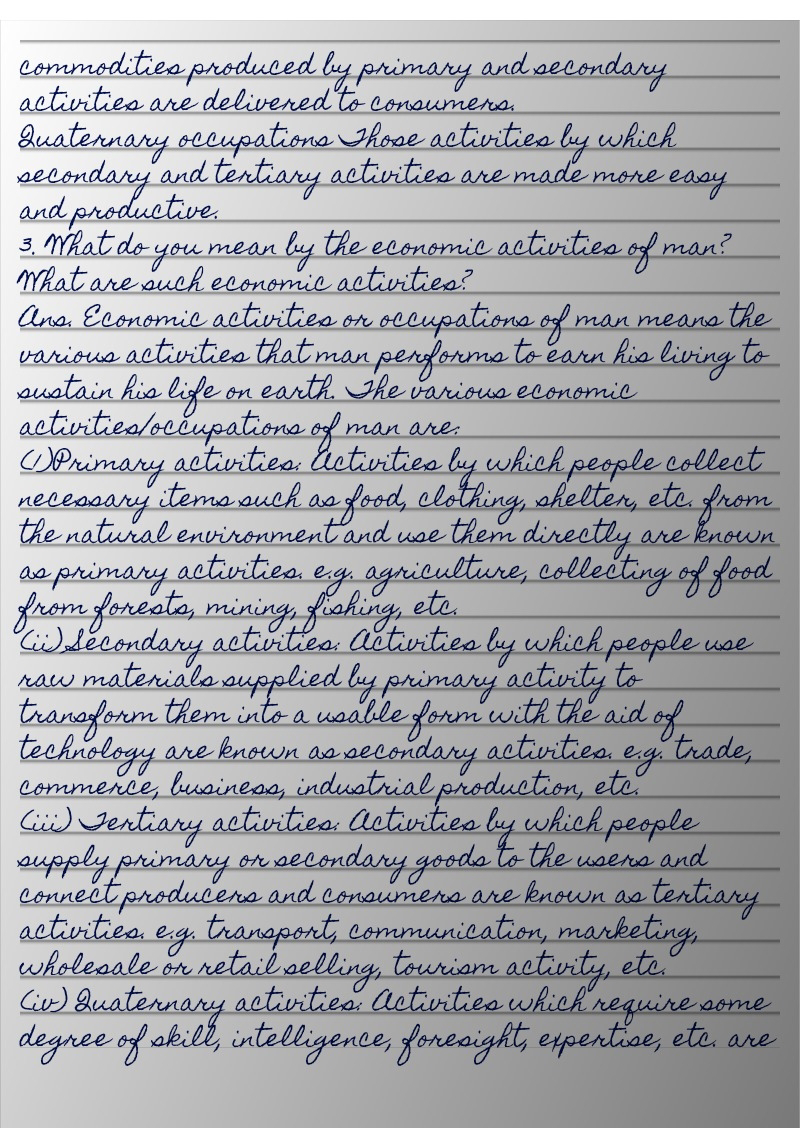 commodities produced by primary and secondary
activities are delivered to consumers.
Quaternary occupations Those activities by which
secondary and tertiary activities are made more easy
and productive.
3. What do you mean by the economic activities of man?
What are such economic activities?
Ans. Economic activities or occupations of man means the
various activities that man performs to earn his living to
sustain his life on earth. The various economic
activities/occupations of man are:
(i)Primary activities: Activities by which people collect
necessary items such as food, clothing, shelter, etc. from
the natural environment and use them directly are known
as primary activities. e.g. agriculture, collecting of food
from forests, mining, fishing, etc.
(ii)Secondary activities: Activities by which people use
raw materials supplied by primary activity to
transform them into a usable form with the aid of
technology are known as secondary activities. e.g. trade,
commerce, business, industrial production, etc.
(iii) Tertiary activities: Activities by which people
supply primary or secondary goods to the users and
connect producers and consumers are known as tertiary
activities. e.g. transport, communication, marketing,
wholesale or retail selling, tourism activity, etc.
(iv) Quaternary activities: Activities which require some
degree of skill, intelligence, foresight, expertise, etc. are